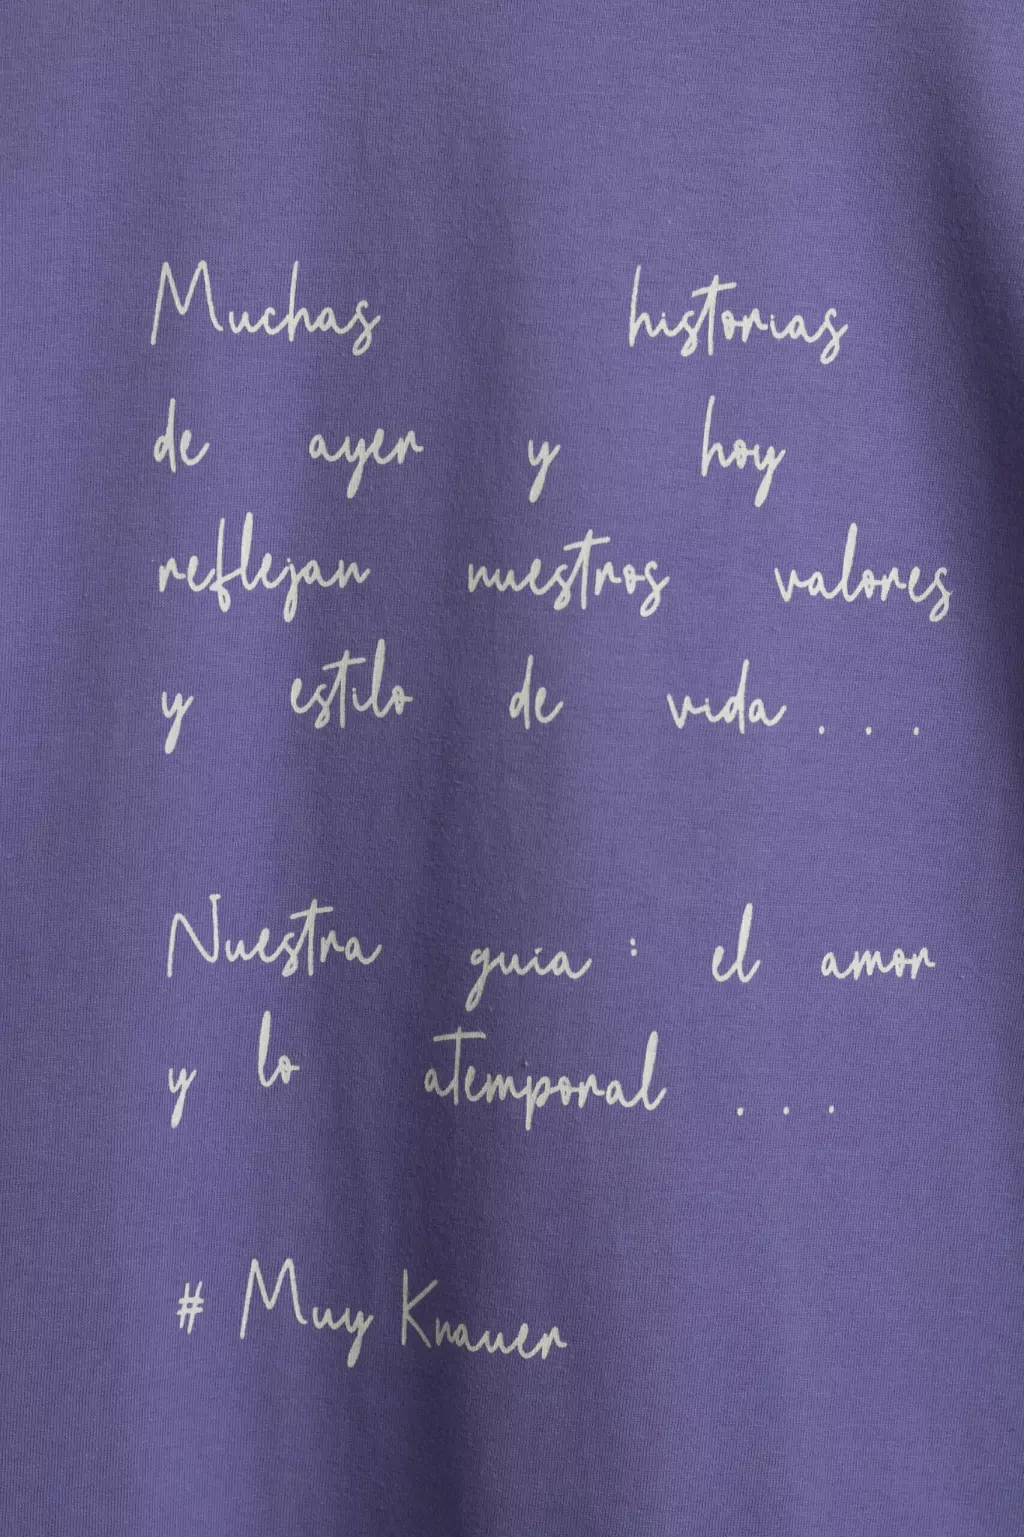 Muchas historias
de ayer y hoy
reflejan nuestros valores
y estilo de vida...
Nuestra guia: el amor
y lo atemporal ...
# Muy Knauer